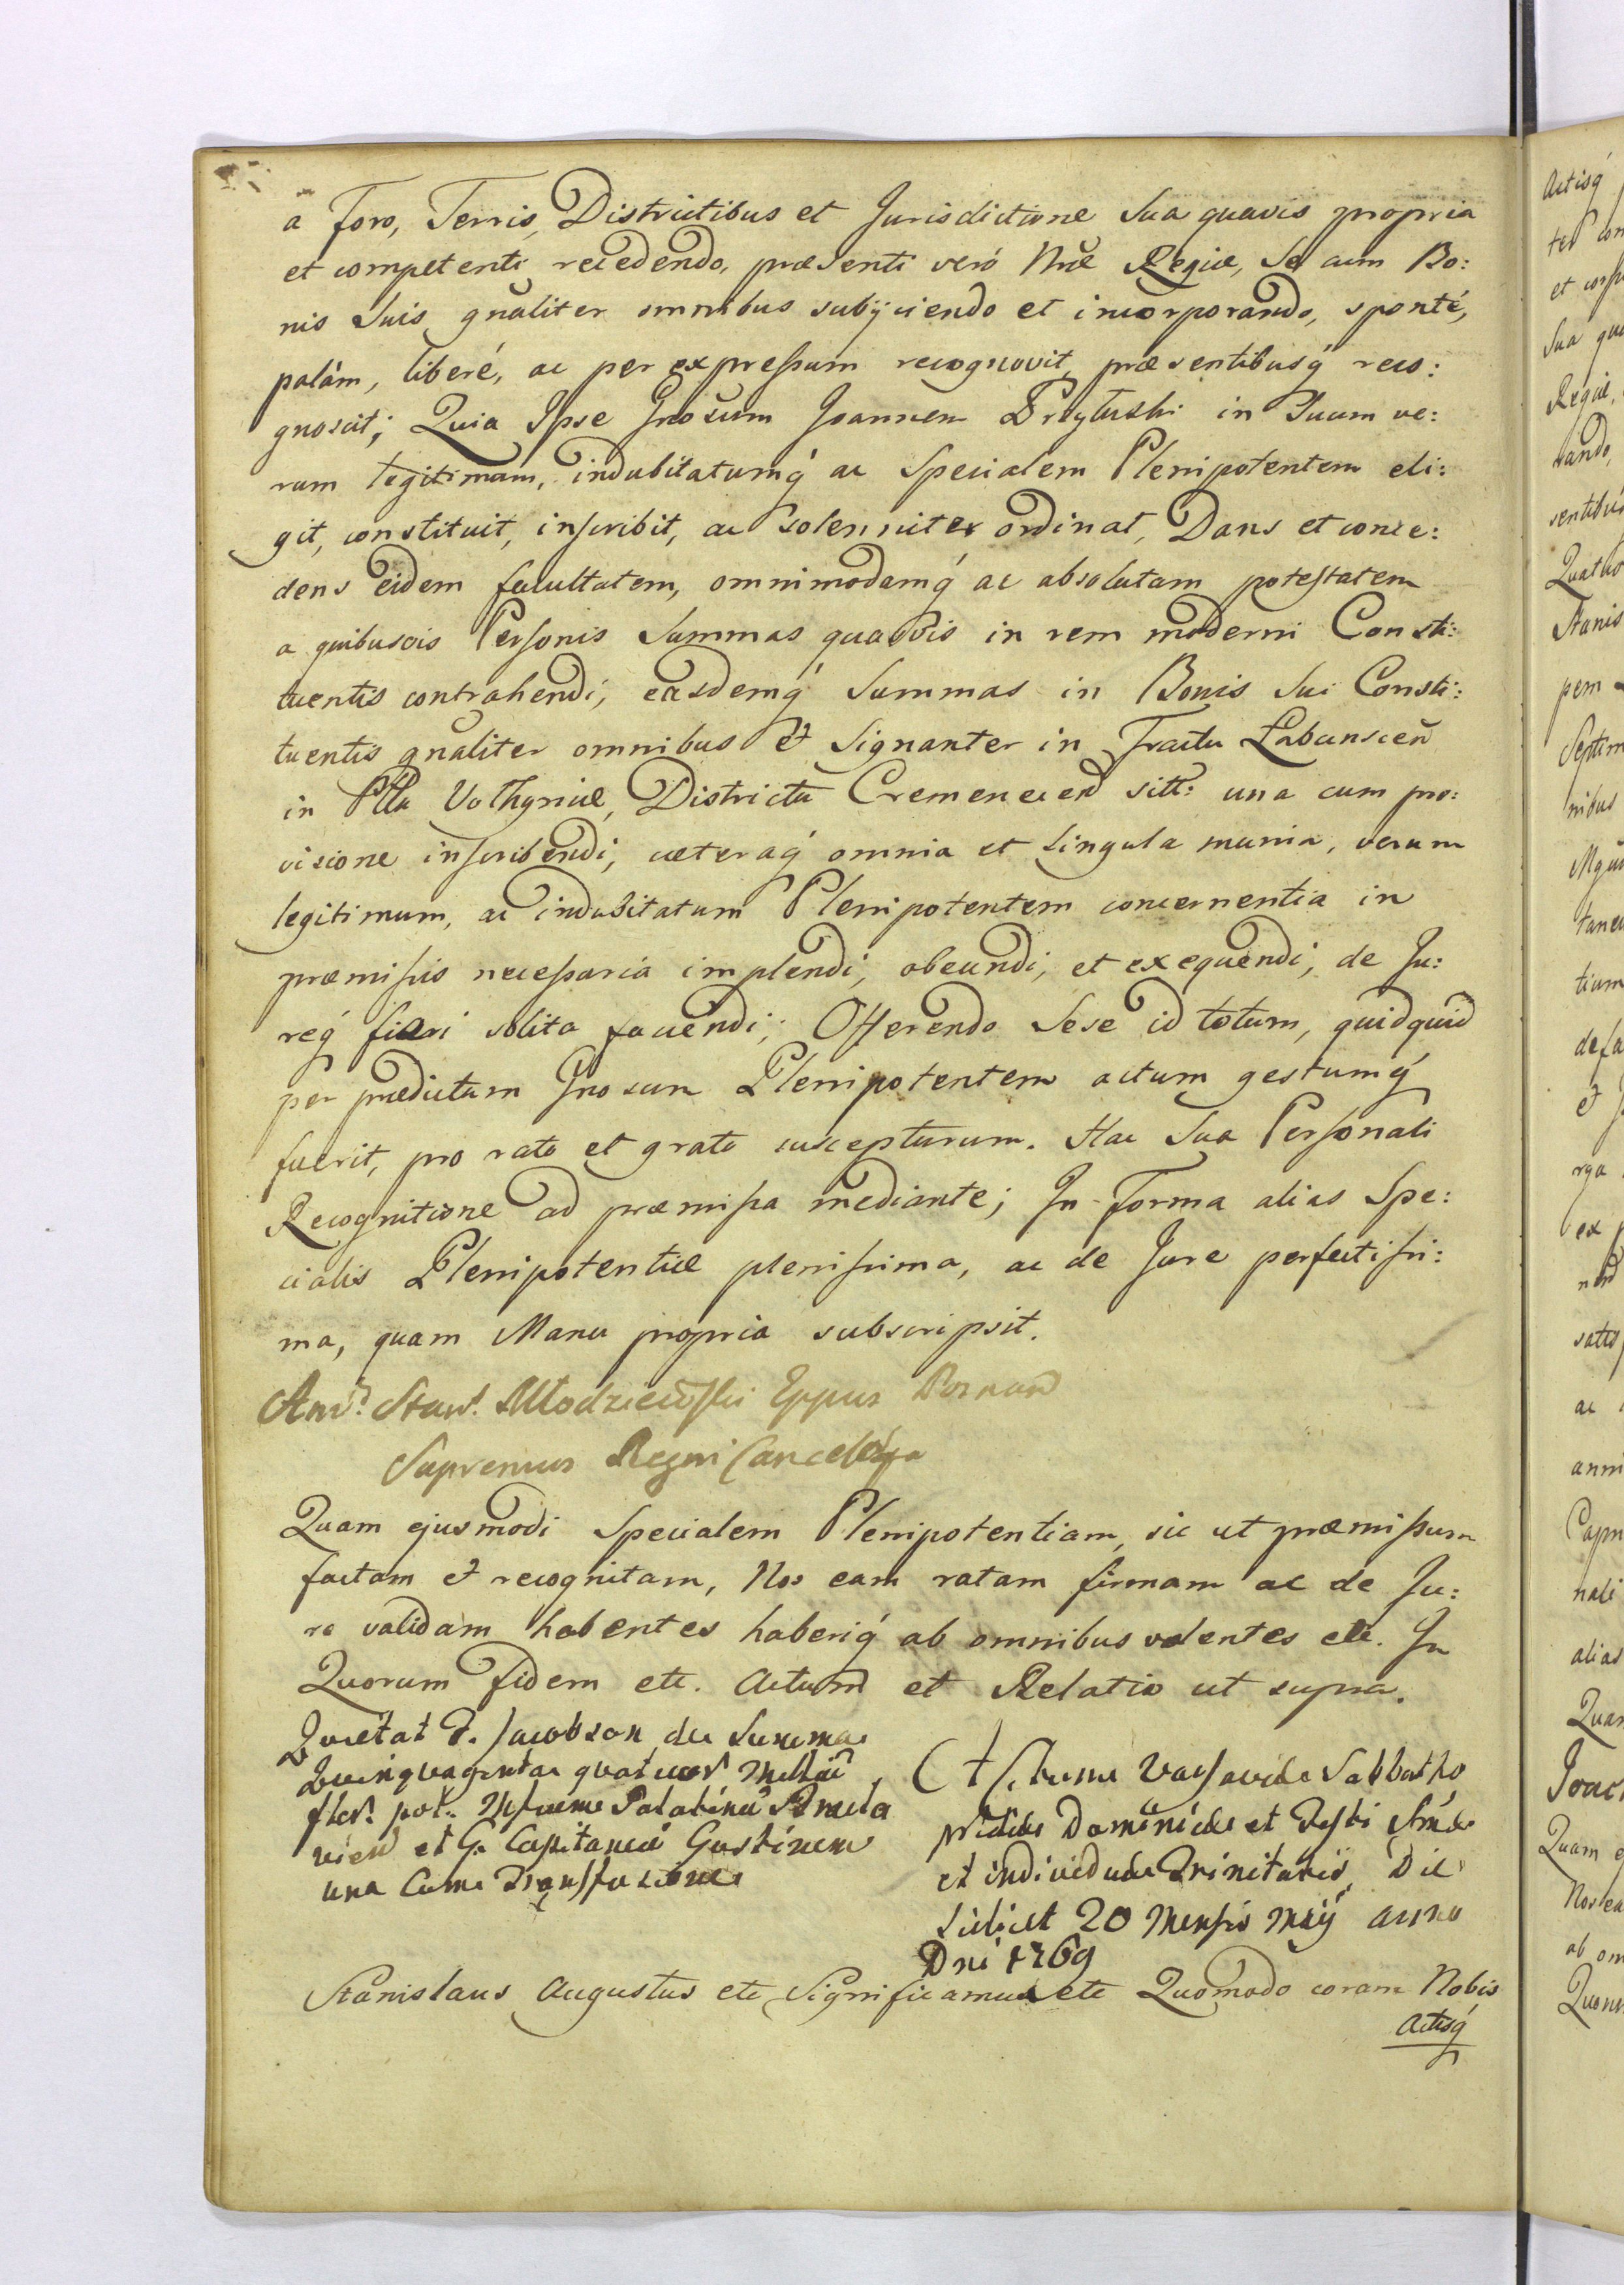 à Foro, Terris, Districtibus et Jurisdictione Sua quavis propria
et competenti recedendo, præsenti veró Nræ Regiæ, Se cum Bo:
nis Suis gnaliter omnibus subijciendo et incorporando, sponté,
palám, liberé, ac per expressum recognovit, præsentibusq́ reco:
gnoscit; Quia Ipse Gnosum Joannem Przytuski in Suum ve:
rum legitimum, indubitatumq́ ac Specialem Plenipotentem eli:
git, constituit, inscribit, ac solenniter ordinat, Dans et conce:
dens eidem facultatem, omnimodamq́ ac absolutam potestatem
a quibusvis Personis Summas quasvis in rem moderni Consti:
tuentis contrahendi, easdemq́ Summas in Bonis Sui Consti:
tuentis gnaliter omnibus et Signanter in Tractu Łabunscen
in Pttu Volhyniæ, Districtu Cremenecen sitt: una cum pro:
visione inscribendi, cæteraq́ omnia et singula munia, verum
legitimum, ac indubitatum Plenipotentem concernentia in
præmissis necessaria implendi, obeundi, et exequendi, de Ju:
req́ fieri solita faciendi; Offerendo Sese id totum, quidquid
per prædictum Gnosum Plenipotentem actum gestumq́
fuerit, pro rato et grato suscepturum. Hac Sua Personali
Recognitione ad præmissa mediante; In Forma alias Spe:
cialis Plenipotentiæ plenissima, ac de Jure perfectissi:
ma, quam Manu propria subscripsit.
And. Stan. Młodziejowski Eppus Posnan
Supremus Regni Cancellarius
Quam ejusmodi Specialem Plenipotentiam, sic ut præmissum
factam et recognitam, Nos eam ratam firmam ac de Ju:
re validam habentes haberiq́ ab omnibus volentes etc. In
Quorum fidem etc. Actum et Relatio ut supra.
Quietat G. Jacobson de Summa
Quinquaginta quatuor Millia
flor. pol. Palatinum
et G. Capitaneum Gostinen
una Cum Transfusione
Actum Varsaviæ Sabbatho
pridie Dominicæ et Festi
et individuæ Trinitatis, Die
Scilicet 20 Mensis Maij anno
Dni 1769
Stanislaus Augustus etc Significamus etc Quomodo coram Nobis
Actisq́